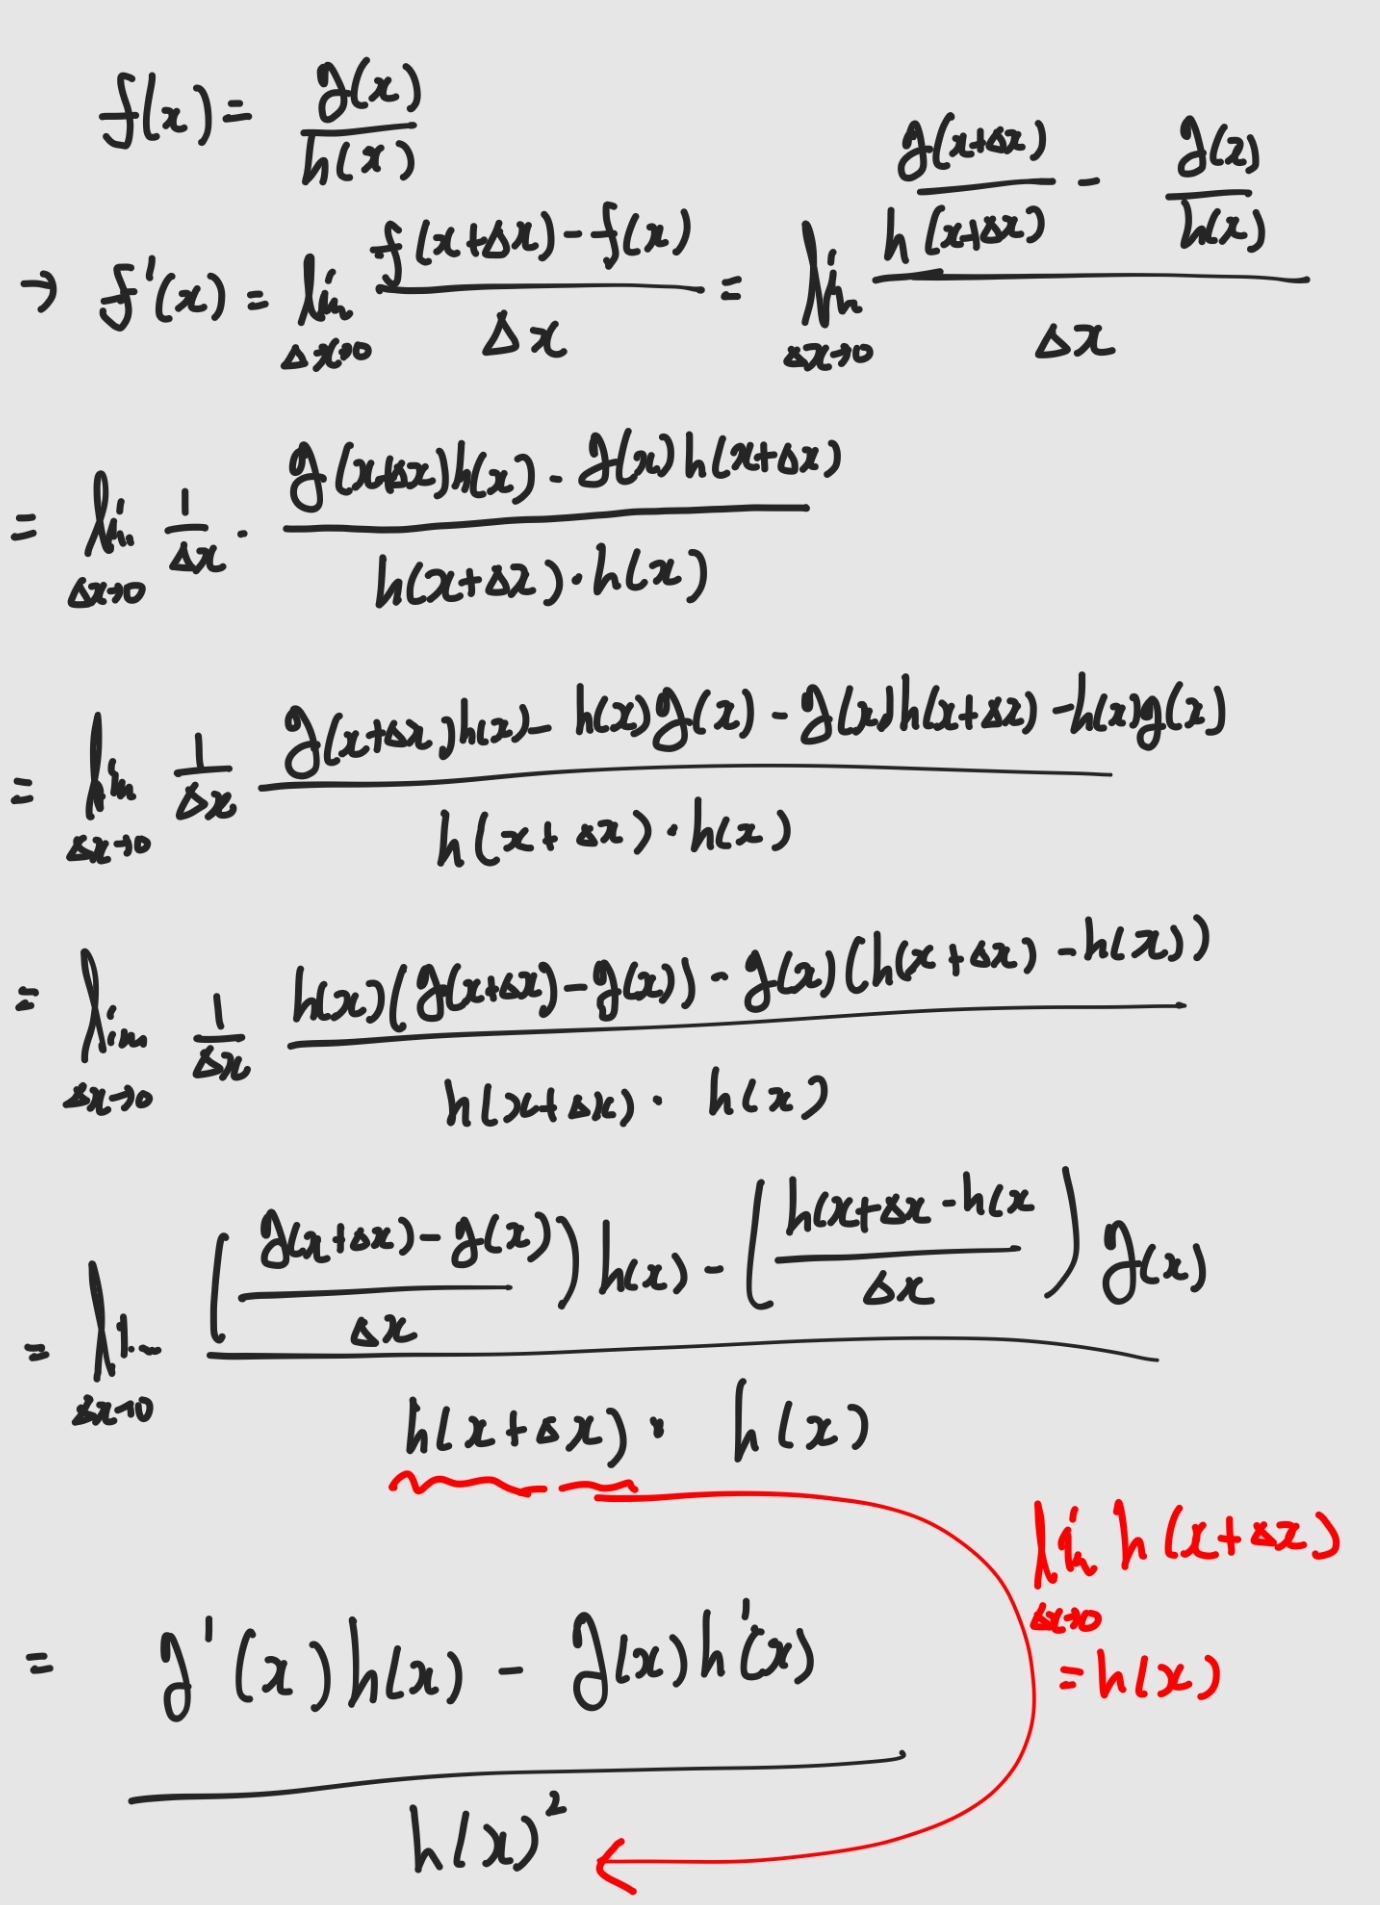 f(x) = g(x) / h(x)
→ f'(x) = lim Δx→0 (f(x+Δx) - f(x)) / Δx = lim Δx→0 (g(x+Δx) / h(x+Δx) - g(x) / h(x)) / Δx
= lim Δx→0 1/Δx · (g(x+Δx)h(x) - g(x)h(x+Δx)) / (h(x+Δx)·h(x))
= lim Δx→0 1/Δx (g(x+Δx)h(x) - h(x)g(x) - g(x)h(x+Δx) - h(x)g(x)) / (h(x+Δx)·h(x))
= lim Δx→0 1/Δx (h(x)(g(x+Δx) - g(x)) - g(x)(h(x+Δx) - h(x))) / (h(x+Δx)· h(x))
= lim Δx→0 (((g(x+Δx) - g(x)) / Δx) h(x) - ((h(x+Δx - h(x) / Δx) g(x)) / (h(x+Δx)· h(x))
lim Δx→0 h(x+Δx)
= h(x)
= (g'(x)h(x) - g(x)h'(x)) / h(x)²